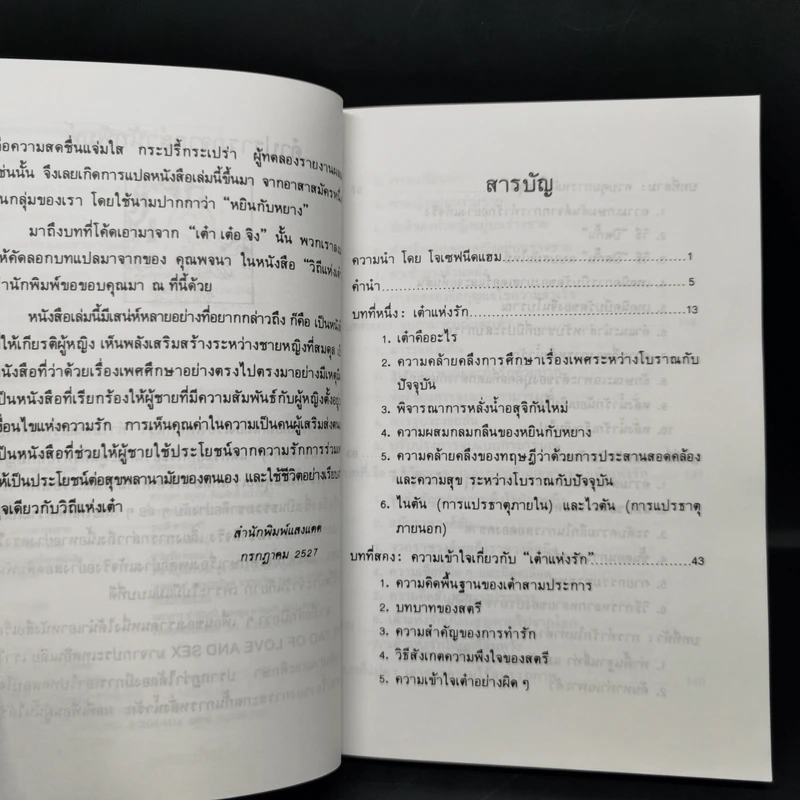 ือความสดชื่นแจ่มใส กระปรี้กระเปร่า ผู้ทดลองรายงานผล
ช่นนั้น จึงเลยเกิดการแปลหนังสือเล่มนี้ขึ้นมา จากอาสาสมัคร
นกลุ่มของเรา โดยใช้นามปากกาว่า “หยินกับหยาง”
มาถึงบทที่โค้ดเอามาจาก “เต๋า เต๋อ จิง” นั้น พวกเรา
ห้คัดลอกบทแปลมาจากของ คุณพจนา ในหนังสือ “วิถีแห่งเต๋
ำนักพิมพ์ขอขอบคุณมา ณ ที่นี้ด้วย
หนังสือเล่มนี้มีเสน่ห์หลายอย่างที่อยากกล่าวถึง ก็คือ เป็นหนัง
ี่ให้เกียรติผู้หญิง เห็นพลังเสริมสร้างระหว่างชายหญิงที่สมดุล
นังสือที่ว่าด้วยเรื่องเพศศึกษาอย่างตรงไปตรงมาอย่างมีเหตุ
ป็นหนังสือที่เรียกร้องให้ผู้ชายที่มีความสัมพันธ์กับผู้หญิงตั้งอยู่
งื่อนไขแห่งความรัก การเห็นคุณค่าในความเป็นคนผู้เสริมส่ง
ป็นหนังสือที่ช่วยให้ผู้ชายใช้ประโยชน์จากความรักการร่วม
ห้เป็นประโยชน์ต่อสุขพลานามัยของตนเอง และใช้ชีวิตอย่างเรียบ
ุจเดียวกับวิถีแห่งเต๋า
สำนักพิมพ์แสงแดด
กรกฎาคม 2527
สารบัญ
ความนำ โดย โจเซฟนีดแฮม..............................1
คำนำ..............................5
บทที่หนึ่ง: เต๋าแห่งรัก..............................13
1. เต๋าคืออะไร
2. ความคล้ายคลึงการศึกษาเรื่องเพศระหว่างโบราณกับ
ปัจจุบัน
3. พิจารณาการหลั่งน้ำอสุจิกันใหม่
4. ความผสมกลมกลืนของหยินกับหยาง
5. ความคล้ายคลึงของทฤษฎีว่าด้วยการประสานสอดคล้อง
และความสุข ระหว่างโบราณกับปัจจุบัน
6. ไนตัน (การแปรธาตุภายใน) และไวตัน (การแปรธาตุ
ภายนอก)
บทที่สอง: ความเข้าใจเกี่ยวกับ “เต๋าแห่งรัก”....................43
1. ความคิดพื้นฐานของเต๋าสามประการ
2. บทบาทของสตรี
3. ความสำคัญของการทำรัก
4. วิธีสังเกตความพึงใจของสตรี
5. ความเข้าใจเต๋าอย่างผิด ๆ